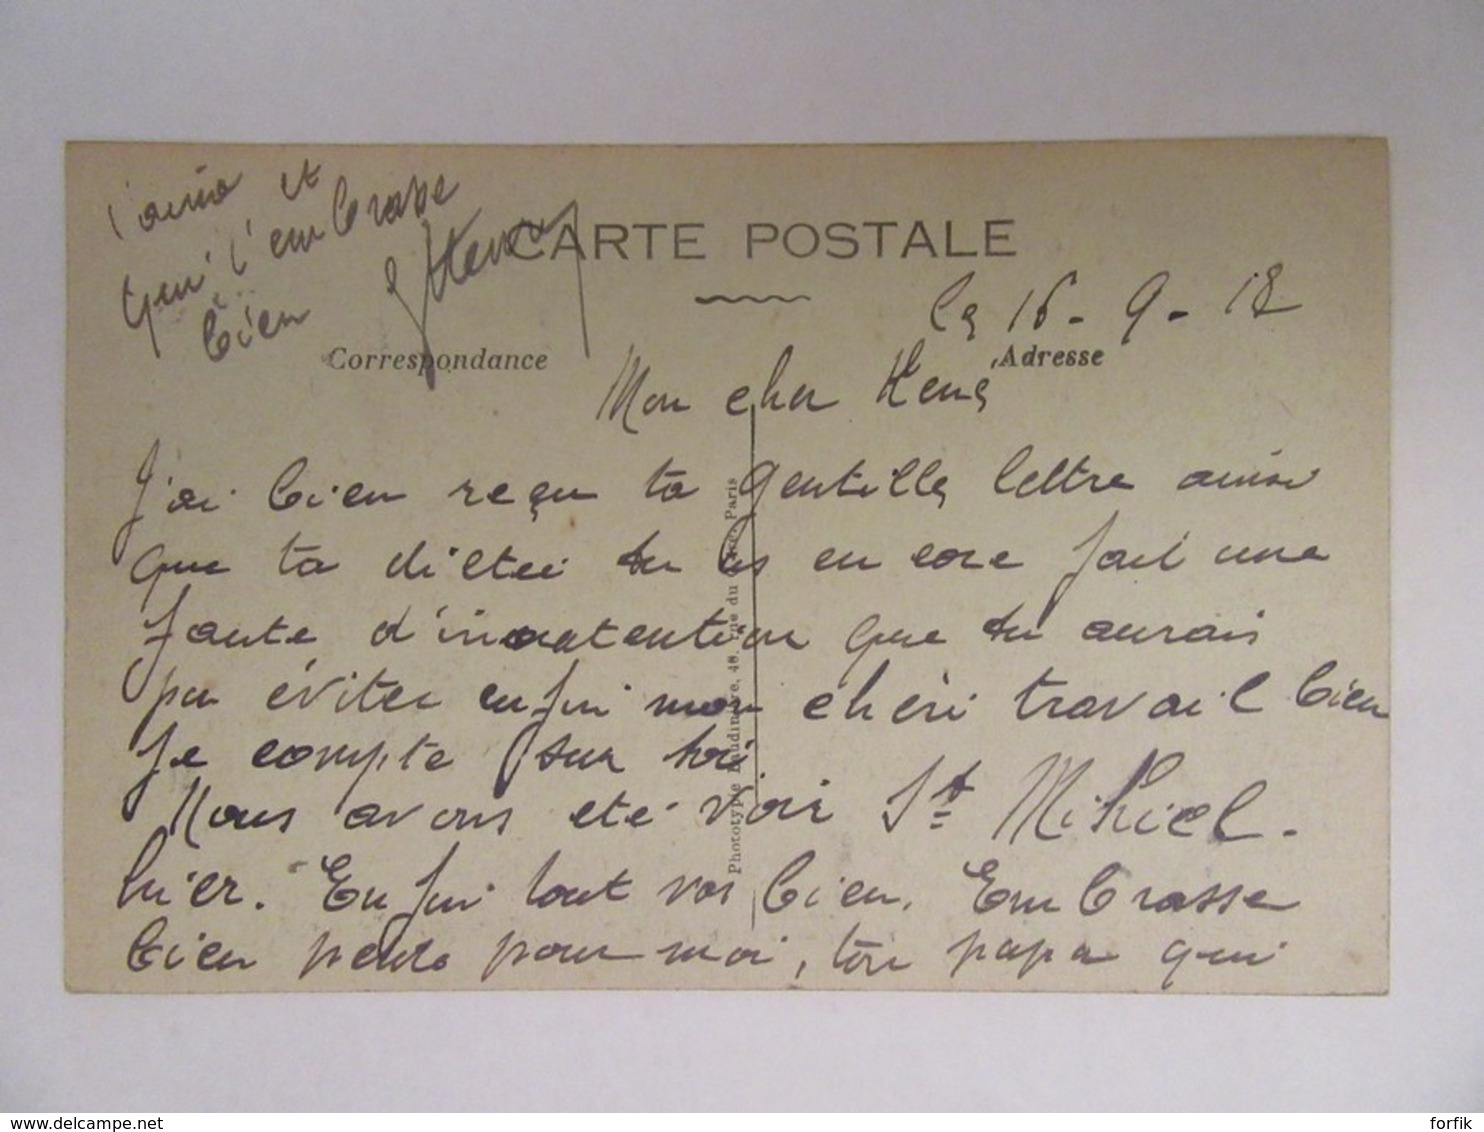 CARTE POSTALE
Correspondance
Adresse
Le 16-9-18
Mon cher René
J'ai bien reçu ta gentille lettre ainsi
que ta dictée tu as en core fait une
faute d'inatention que tu aurais
pu éviter enfin mon chéri travail bien
Je compte sur toi
Nous avons été voir St Mihiel.
hier. Enfin tout vas bien. Embrasse
bien pour moi, ton papa qui
t'aime et
qui t'embrasse
bien
Phototypie Baudinière, 48, rue du Paris
www.delcampe.net
forfik